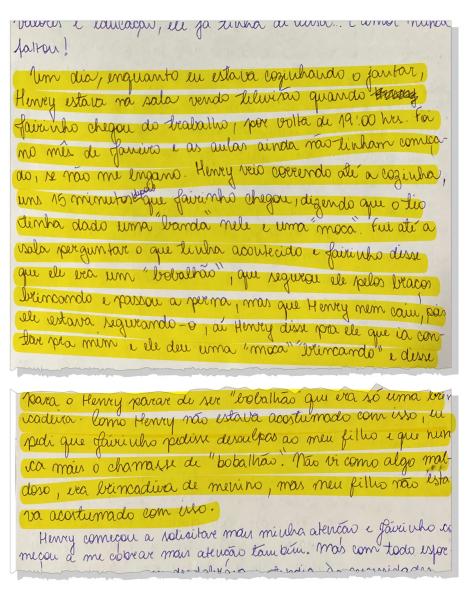 valores e educação, ele já tinha de nunca faltou!
Um dia, enquanto eu estava cozinhando o jantar,
Henry estava na sala vendo televisão quando
Jairinho chegou do trabalho, por volta de 19:00 hrs. Foi
no mês de janeiro e as aulas ainda não tinham começa-
do, se não me engano. Henry veio correndo até a cozinha,
uns 15 minutos depois que Jairinho chegou, dizendo que o tio
tinha dado uma "banda" nele e uma "moca". Fui até a
sala perguntar o que tinha acontecido e Jairinho disse
que ele era um "bobalhão", que segurou ele pelos braços
brincando e passou a perna, mas que Henry nem caiu, pois
ele estava segurando-o, aí Henry disse pra ele que ia con-
tar pra mim e ele deu uma "moca" "brincando" e disse
para o Henry parar de ser "bobalhão" que era só uma brin
cadeira. Como Henry não estava acostumado com isso, eu
pedi que Jairinho pedisse desculpas ao meu filho e que nun
ca mais o chamasse de "bobalhão". Não vi como algo mal-
doso, era brincadeira de menino, mas meu filho não esta
va acostumado com isso.
Henry começou a solicitar mais minha atenção e Jairinho co
meçou a me cobrar mais atenção também. Mas com todo esfor-